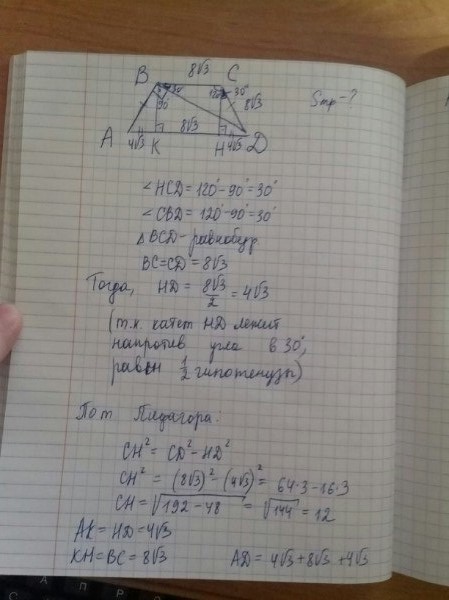 8√3
B C
30° 120° 30°
90° 8√3
Sтр-?
A 4√3 K 8√3 H 4√3 D
∠HCD = 120°-90°=30°
∠CBD = 120°-90°=30°
△BCD- равнобедр.
BC=CD=8√3
Тогда, HD= 8√3/2 = 4√3
(т.к. катет HD лежит
напротив угла в 30°,
равен 1/2 гипотенузы)
По т. Пифагора:
CH² = CD²-HD²
CH² = (8√3)²-(4√3)² = 64·3-16·3
CH=√192-48 = √144 = 12
AK=HD=4√3
KH=BC=8√3 AD=4√3+8√3+4√3